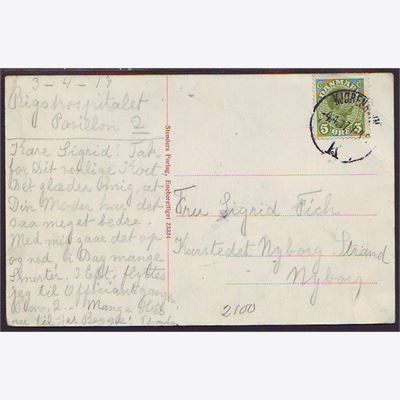 3-4-13
Rigshospitalet
Pavillon 2
Kære Sigrid! Tak
for Dit venlige Kort
Det glæder mig, at
Din Moder har det
saa meget bedre.
Med mig gaar det op
og ned i Dag mange
Smerter. I Eft. flyttes
jeg til Officiantgangen
2. Mange Hils
til Jer Begge!
Stenders Forlag, Eneberettiget 25334
DANMARK
5 ØRE 5
KJØBENHAVN
K
Fru Sigrid Fich
Kurstedet Nyborg Strand
Nyborg
2100